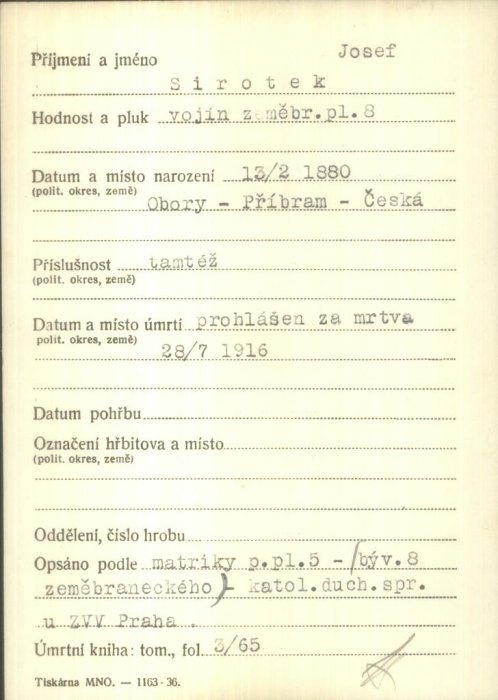 Josef
Příjmení a jméno
Sirotek
Hodnost a pluk vojín zeměbr.pl.8
Datum a místo narození 13/2 1880
(polit. okres, země)
Obory - Příbram - Česká
Příslušnost tamtéž
(polit. okres, země)
Datum a místo úmrtí prohlášen za mrtva
polit. okres, země)
28/7 1916
Datum pohřbu
Označení hřbitova a místo
(polit. okres, země)
Oddělení, číslo hrobu
Opsáno podle matriky p.pl.5 - (býv.8
zeměbraneckého) - katol.duch.spr.
u ZVV Praha .
Úmrtní kniha: tom., fol. 3/65
Tiskárna MNO. — 1163-36.